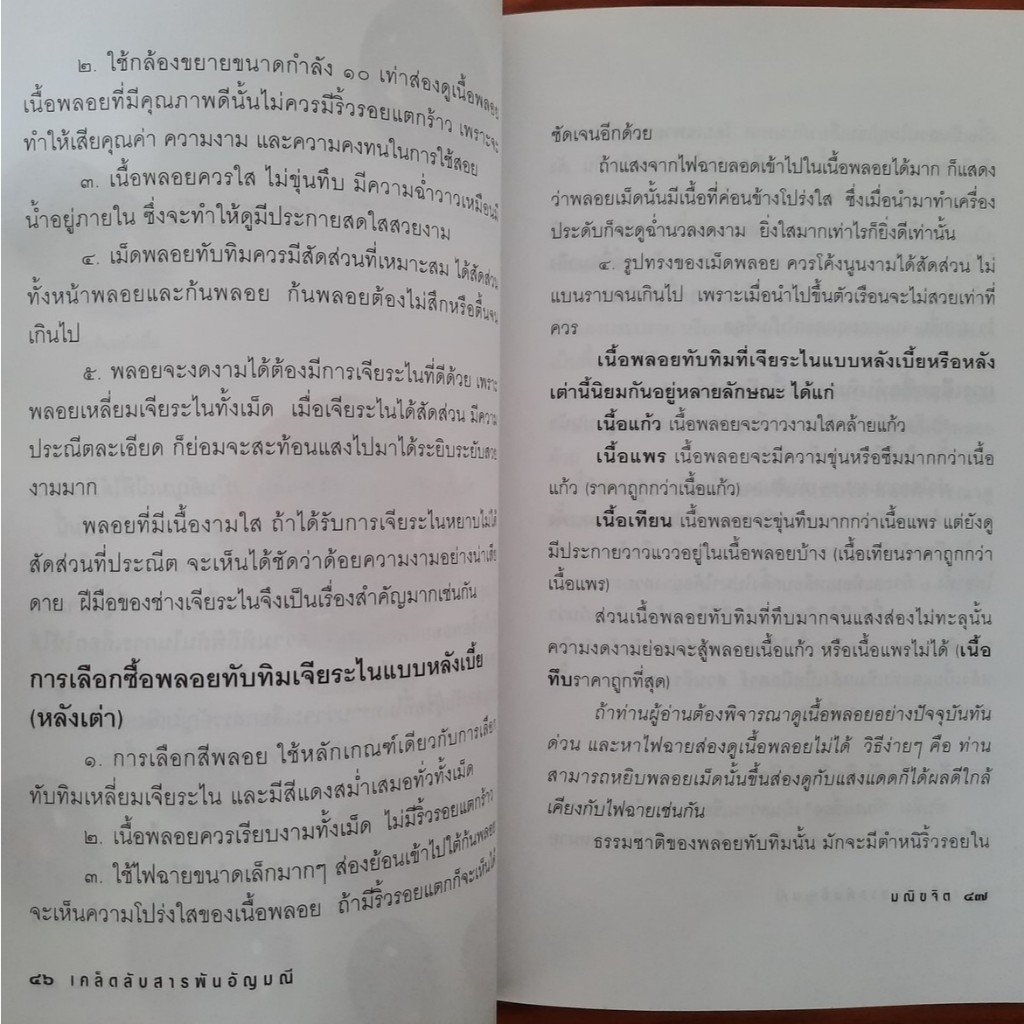 ๒. ใช้กล้องขยายขนาดกำลัง ๑๐ เท่าส่องดูเนื้อพลอย
เนื้อพลอยที่มีคุณภาพดีนั้นไม่ควรมีริ้วรอยแตกร้าว เพราะจะ
ทำให้เสียคุณค่า ความงาม และความคงทนในการใช้สอย
๓. เนื้อพลอยควรใส ไม่ขุ่นทึบ มีความฉ่ำวาวเหมือนมี
น้ำอยู่ภายใน ซึ่งจะทำให้ดูมีประกายสดใสสวยงาม
๔. เม็ดพลอยทับทิมควรมีสัดส่วนที่เหมาะสม ได้สัดส่วน
ทั้งหน้าพลอยและก้นพลอย ก้นพลอยต้องไม่ลึกหรือตื้นจน
เกินไป
๕. พลอยจะงดงามได้ต้องมีการเจียระไนที่ดีด้วย เพราะ
พลอยเหลี่ยมเจียระไนทั้งเม็ด เมื่อเจียระไนได้สัดส่วน มีความ
ประณีตละเอียด ก็ย่อมจะสะท้อนแสงไปมาได้ระยิบระยับสวย
งามมาก
พลอยที่มีเนื้องามใส ถ้าได้รับการเจียระไนหยาบไม่ได้
สัดส่วนที่ประณีต จะเห็นได้ชัดว่าด้อยความงามอย่างน่าเสีย
ดาย ฝีมือของช่างเจียระไนจึงเป็นเรื่องสำคัญมากเช่นกัน
การเลือกซื้อพลอยทับทิมเจียระไนแบบหลังเบี้ย
(หลังเต่า)
๑. การเลือกสีพลอย ใช้หลักเกณฑ์เดียวกับการเลือก
ทับทิมเหลี่ยมเจียระไน และมีสีแดงสม่ำเสมอทั่วทั้งเม็ด
๒. เนื้อพลอยควรเรียบงามทั้งเม็ด ไม่มีริ้วรอยแตกร้าว
๓. ใช้ไฟฉายขนาดเล็กมากๆ ส่องย้อนเข้าไปใต้ก้นพลอย
จะเห็นความโปร่งใสของเนื้อพลอย ถ้ามีริ้วรอยแตกก็จะเห็นได้
๔๖ เคล็ดลับสารพันอัญมณี
ชัดเจนอีกด้วย
ถ้าแสงจากไฟฉายลอดเข้าไปในเนื้อพลอยได้มาก ก็แสดง
ว่าพลอยเม็ดนั้นมีเนื้อที่ค่อนข้างโปร่งใส ซึ่งเมื่อนำมาทำเครื่อง
ประดับก็จะดูฉ่ำนวลงดงาม ยิ่งใสมากเท่าไรก็ยิ่งดีเท่านั้น
๔. รูปทรงของเม็ดพลอย ควรโค้งนูนงามได้สัดส่วน ไม่
แบนราบจนเกินไป เพราะเมื่อนำไปขึ้นตัวเรือนจะไม่สวยเท่าที่
ควร
เนื้อพลอยทับทิมที่เจียระไนแบบหลังเบี้ยหรือหลัง
เต่านี้นิยมกันอยู่หลายลักษณะ ได้แก่
เนื้อแก้ว เนื้อพลอยจะวาวงามใสคล้ายแก้ว
เนื้อแพร เนื้อพลอยจะมีความขุ่นหรือซึมมากกว่าเนื้อ
แก้ว (ราคาถูกกว่าเนื้อแก้ว)
เนื้อเทียน เนื้อพลอยจะขุ่นทึบมากกว่าเนื้อแพร แต่ยังดู
มีประกายวาวแววอยู่ในเนื้อพลอยบ้าง (เนื้อเทียนราคาถูกกว่า
เนื้อแพร)
ส่วนเนื้อพลอยทับทิมที่ทึบมากจนแสงส่องไม่ทะลุนั้น
ความงดงามย่อมจะสู้พลอยเนื้อแก้ว หรือเนื้อแพรไม่ได้ (เนื้อ
ทึบราคาถูกที่สุด)
ถ้าท่านผู้อ่านต้องพิจารณาดูเนื้อพลอยอย่างปัจจุบันทัน
ด่วน และหาไฟฉายส่องดูเนื้อพลอยไม่ได้ วิธีง่ายๆ คือ ท่าน
สามารถหยิบพลอยเม็ดนั้นขึ้นส่องดูกับแสงแดดก็ได้ผลดีใกล้
เคียงกับไฟฉายเช่นกัน
ธรรมชาติของพลอยทับทิมนั้น มักจะมีตำหนิริ้วรอยใน
มณิขจิต ๔๗